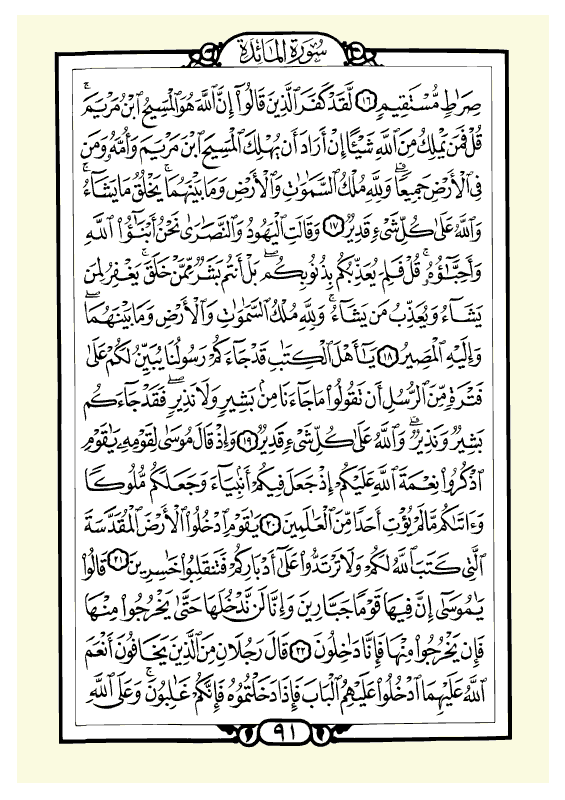 سُورَةُ المَائدَة
صِرَٰطٍ مُّسْتَقِيمٍ ١٦ لَّقَدْ كَفَرَ ٱلَّذِينَ قَالُوٓا۟ إِنَّ ٱللَّهَ هُوَ ٱلْمَسِيحُ ٱبْنُ مَرْيَمَ ۚ
قُلْ فَمَن يَمْلِكُ مِنَ ٱللَّهِ شَيْـًٔا إِنْ أَرَادَ أَن يُهْلِكَ ٱلْمَسِيحَ ٱبْنَ مَرْيَمَ وَأُمَّهُۥ وَمَن
فِى ٱلْأَرْضِ جَمِيعًا ۗ وَلِلَّهِ مُلْكُ ٱلسَّمَٰوَٰتِ وَٱلْأَرْضِ وَمَا بَيْنَهُمَا ۚ يَخْلُقُ مَا يَشَآءُ ۚ
وَٱللَّهُ عَلَىٰ كُلِّ شَىْءٍ قَدِيرٌ ١٧ وَقَالَتِ ٱلْيَهُودُ وَٱلنَّصَٰرَىٰ نَحْنُ أَبْنَٰٓؤُا۟ ٱللَّهِ
وَأَحِبَّٰٓؤُهُۥ ۚ قُلْ فَلِمَ يُعَذِّبُكُم بِذُنُوبِكُم ۖ بَلْ أَنتُم بَشَرٌ مِّمَّنْ خَلَقَ ۚ يَغْفِرُ لِمَن
يَشَآءُ وَيُعَذِّبُ مَن يَشَآءُ ۚ وَلِلَّهِ مُلْكُ ٱلسَّمَٰوَٰتِ وَٱلْأَرْضِ وَمَا بَيْنَهُمَا ۖ
وَإِلَيْهِ ٱلْمَصِيرُ ١٨ يَٰٓأَهْلَ ٱلْكِتَٰبِ قَدْ جَآءَكُمْ رَسُولُنَا يُبَيِّنُ لَكُمْ عَلَىٰ
فَتْرَةٍ مِّنَ ٱلرُّسُلِ أَن تَقُولُوا۟ مَا جَآءَنَا مِنۢ بَشِيرٍ وَلَا نَذِيرٍ ۖ فَقَدْ جَآءَكُم
بَشِيرٌ وَنَذِيرٌ ۗ وَٱللَّهُ عَلَىٰ كُلِّ شَىْءٍ قَدِيرٌ ١٩ وَإِذْ قَالَ مُوسَىٰ لِقَوْمِهِۦ يَٰقَوْمِ
ٱذْكُرُوا۟ نِعْمَةَ ٱللَّهِ عَلَيْكُمْ إِذْ جَعَلَ فِيكُمْ أَنۢبِيَآءَ وَجَعَلَكُم مُّلُوكًا
وَءَاتَىٰكُم مَّا لَمْ يُؤْتِ أَحَدًا مِّنَ ٱلْعَٰلَمِينَ ٢٠ يَٰقَوْمِ ٱدْخُلُوا۟ ٱلْأَرْضَ ٱلْمُقَدَّسَةَ
ٱلَّتِى كَتَبَ ٱللَّهُ لَكُمْ وَلَا تَرْتَدُّوا۟ عَلَىٰٓ أَدْبَارِكُمْ فَتَنقَلِبُوا۟ خَٰسِرِينَ ٢١ قَالُوا۟
يَٰمُوسَىٰٓ إِنَّ فِيهَا قَوْمًا جَبَّارِينَ وَإِنَّا لَن نَّدْخُلَهَا حَتَّىٰ يَخْرُجُوا۟ مِنْهَا
فَإِن يَخْرُجُوا۟ مِنْهَا فَإِنَّا دَٰخِلُونَ ٢٢ قَالَ رَجُلَانِ مِنَ ٱلَّذِينَ يَخَافُونَ أَنْعَمَ
ٱللَّهُ عَلَيْهِمَا ٱدْخُلُوا۟ عَلَيْهِمُ ٱلْبَابَ فَإِذَا دَخَلْتُمُوهُ فَإِنَّكُمْ غَٰلِبُونَ ۚ وَعَلَى ٱللَّهِ
٩١